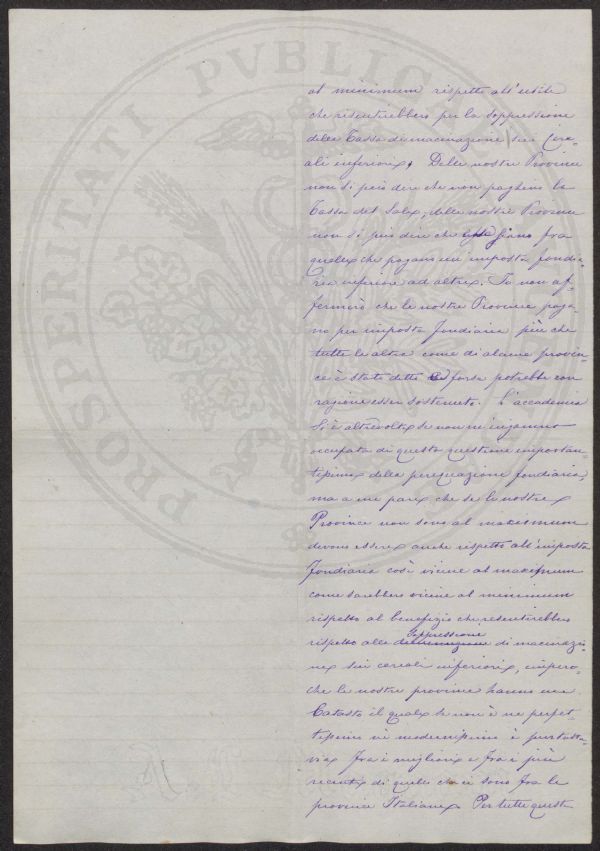 PROSPERITATI PVBLICAE
al minimum rispetto all'utile
che risentirebbero per la soppressione
della Tassa di macinazione sui Cere-
ali inferiori. Delle nostre Provincie
non si può dire che non paghino la
Tassa del Sale, delle nostre Provincie
non si può dire che siano fra
quelle che pagano un'imposta fondia-
ria inferiore ad altre. Io non af-
fermerò che le nostre Provincie paga-
no per imposta fondiaria più che
tutte le altre come di alcune provin-
ce è stato detto e forse potrebbe con
ragione esser sostenuto. L'accademia
si è altre volte se non m'inganno
occupata di questa questione importan-
tissima della perequazione fondiaria,
ma a me pare che se le nostre
Provincie non sono al maximum
devono essere anche rispetto all'imposta
fondiaria così vicine al maximum
come sarebbero vicine al minimum
rispetto al benefizio che risentirebbero
rispetto alla soppressione di macinazio-
ne sui cereali inferiori, impero-
che le nostre provincie hanno un
Catasto il quale se non è ne perfet-
tissimo nè modernissimo è puttutta-
via fra i migliori e fra i più
recenti di quelli che ci sono fra le
provincie Italiane. Per tutte queste